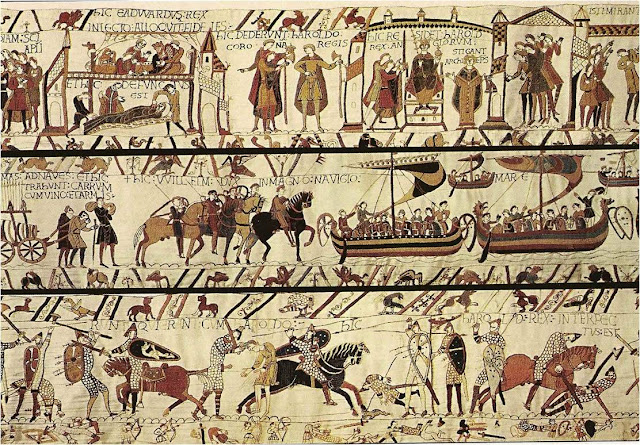 IAM: SCI
APLI
HIC EADWARDUS: REX
IN LECTO: ALLOQUIT: FIDELES:
ET HIC: DEFUNCTUS
EST
HIC DEDERUNT: HAROLDO:
CORONA REGIS
HIC RESIDET: HAROLD
REX: ANGLORUM:
STIGANT
ARCHIEPS
ISTI MIRANT
MAS: ADNAVES: ETHIC
TRAHUNT: CARRUM
CUM VINO: ET ARMIS:
HIC: WILLELM: DUX IN MAGNO: NAVIGIO:
MARE
RUNT QUI ERANT CUM HAROLDO: HIC HAROLD: REX: INTERFEC
TUS: EST